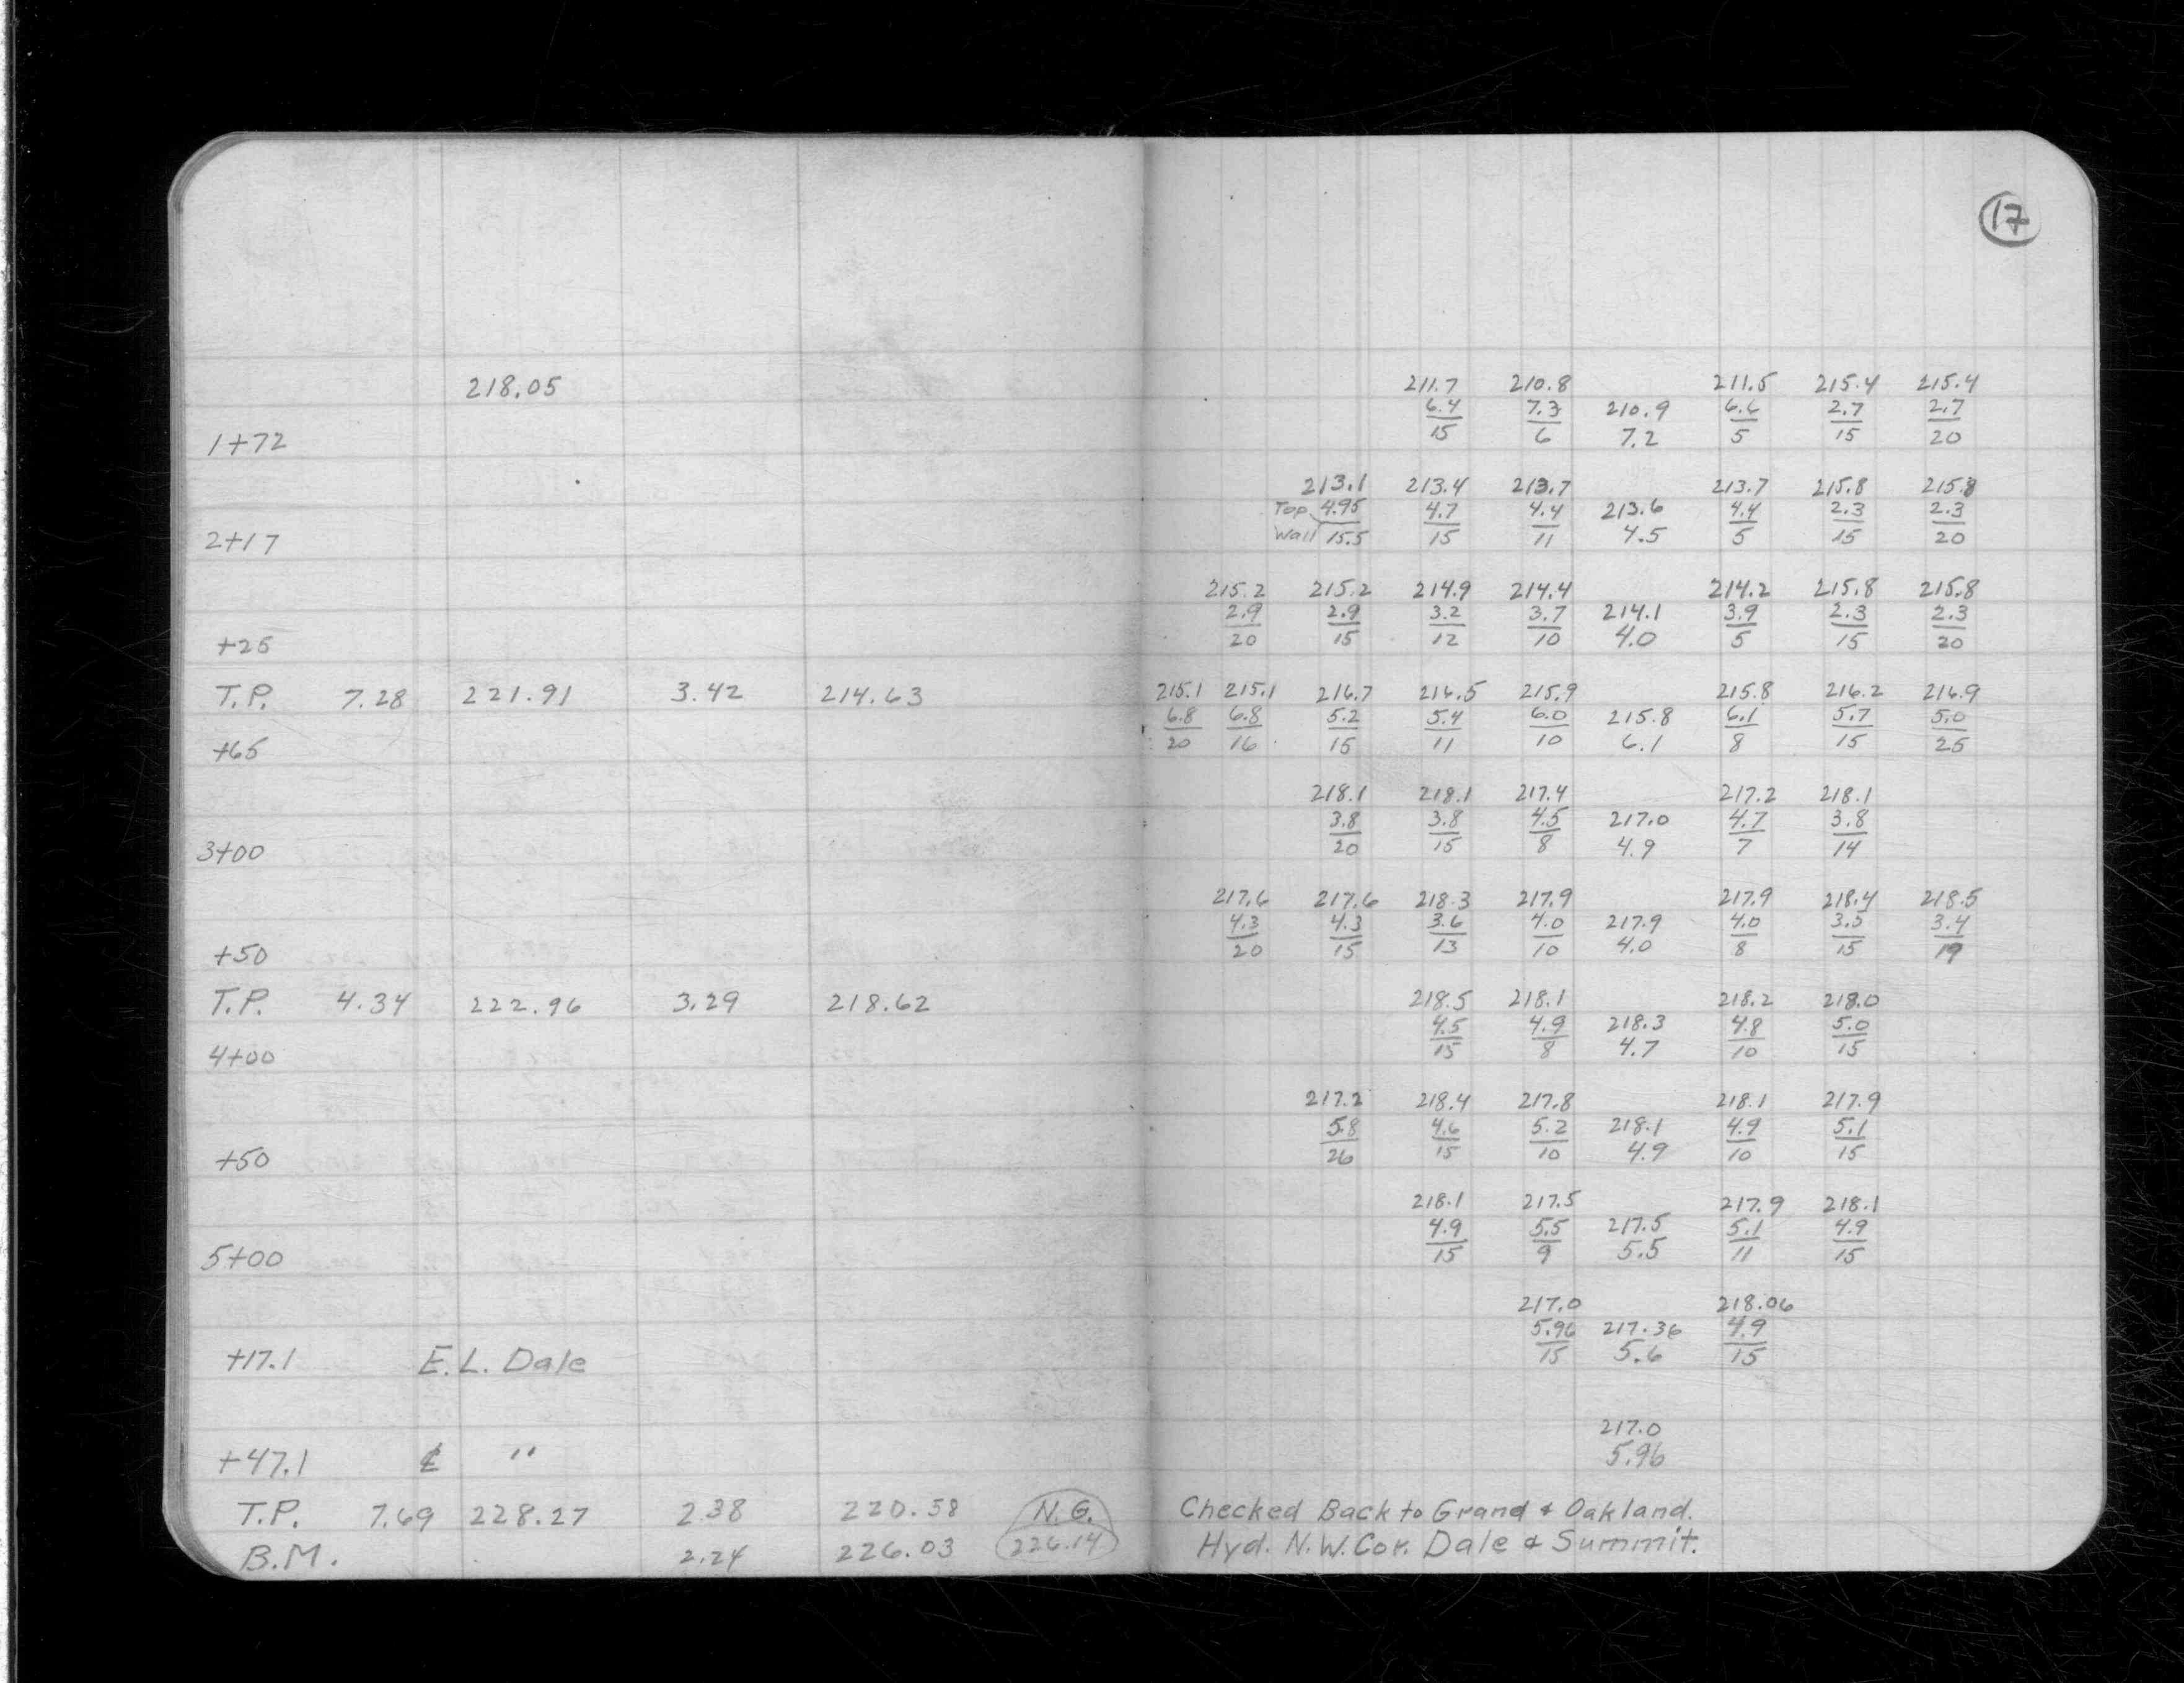 17
218.05 211.7 210.8 211.5 215.4 215.4
6.4 7.3 210.9 6.6 2.7 2.7
1+72 15 6 7.2 5 15 20
213.1 213.4 213.7 213.7 215.8 215.8
Top 4.95 4.7 4.4 213.6 4.4 2.3 2.3
2+17 Wall 15.5 15 11 4.5 5 15 20
215.2 215.2 214.9 214.4 214.2 215.8 215.8
2.9 2.9 3.2 3.7 214.1 3.9 2.3 2.3
+25 20 15 12 10 4.0 5 15 20
T.P. 7.28 221.91 3.42 214.63 215.1 215.1 216.7 216.5 215.9 215.8 216.2 216.9
6.8 6.8 5.2 5.4 6.0 215.8 6.1 5.7 5.0
+65 20 16 15 11 10 6.1 8 15 25
218.1 218.1 217.4 217.2 218.1
3.8 3.8 4.5 217.0 4.7 3.8
3+00 20 15 8 4.9 7 14
217.6 217.6 218.3 217.9 217.9 218.4 218.5
4.3 4.3 3.6 4.0 217.9 4.0 3.5 3.4
+50 20 15 13 10 4.0 8 15 19
T.P. 4.34 222.96 3.29 218.62 218.5 218.1 218.2 218.0
4.5 4.9 218.3 4.8 5.0
4+00 15 8 4.7 10 15
217.2 218.4 217.8 218.1 217.9
5.8 4.6 5.2 218.1 4.9 5.1
+50 26 15 10 4.9 10 15
218.1 217.5 217.9 218.1
4.9 5.5 217.5 5.1 4.9
5+00 15 9 5.5 11 15
217.0 218.06
5.96 217.36 4.9
+17.1 E.L. Dale 15 5.6 15
217.0
+47.1 ₵ " 5.96
T.P. 7.69 228.27 2.38 220.58 N.G. Checked Back to Grand & Oakland.
B.M. 2.24 226.03 226.14 Hyd. N.W. Cor. Dale & Summit.